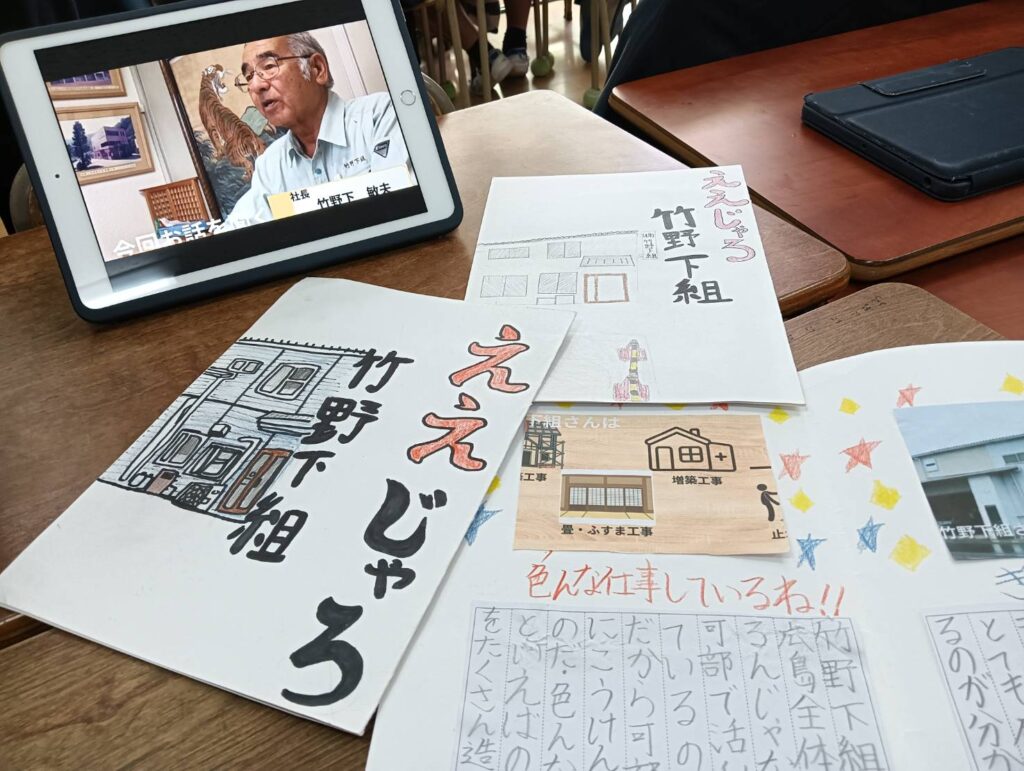 竹野下組
社長
竹野下 敏夫
今回お話を
ええじゃろ
竹野下組
ええじゃろ
竹野下組
下組さんは
工事
増築工事
畳・ふすま工事
止
色んな仕事しているね!!
竹野下組
広島全体
るんじゃな
可部で活
ているの
だから可部
にこうけん
のだ・色んな
といえばの
をたくさん造
竹野下組さ
き
とても
るのが分か